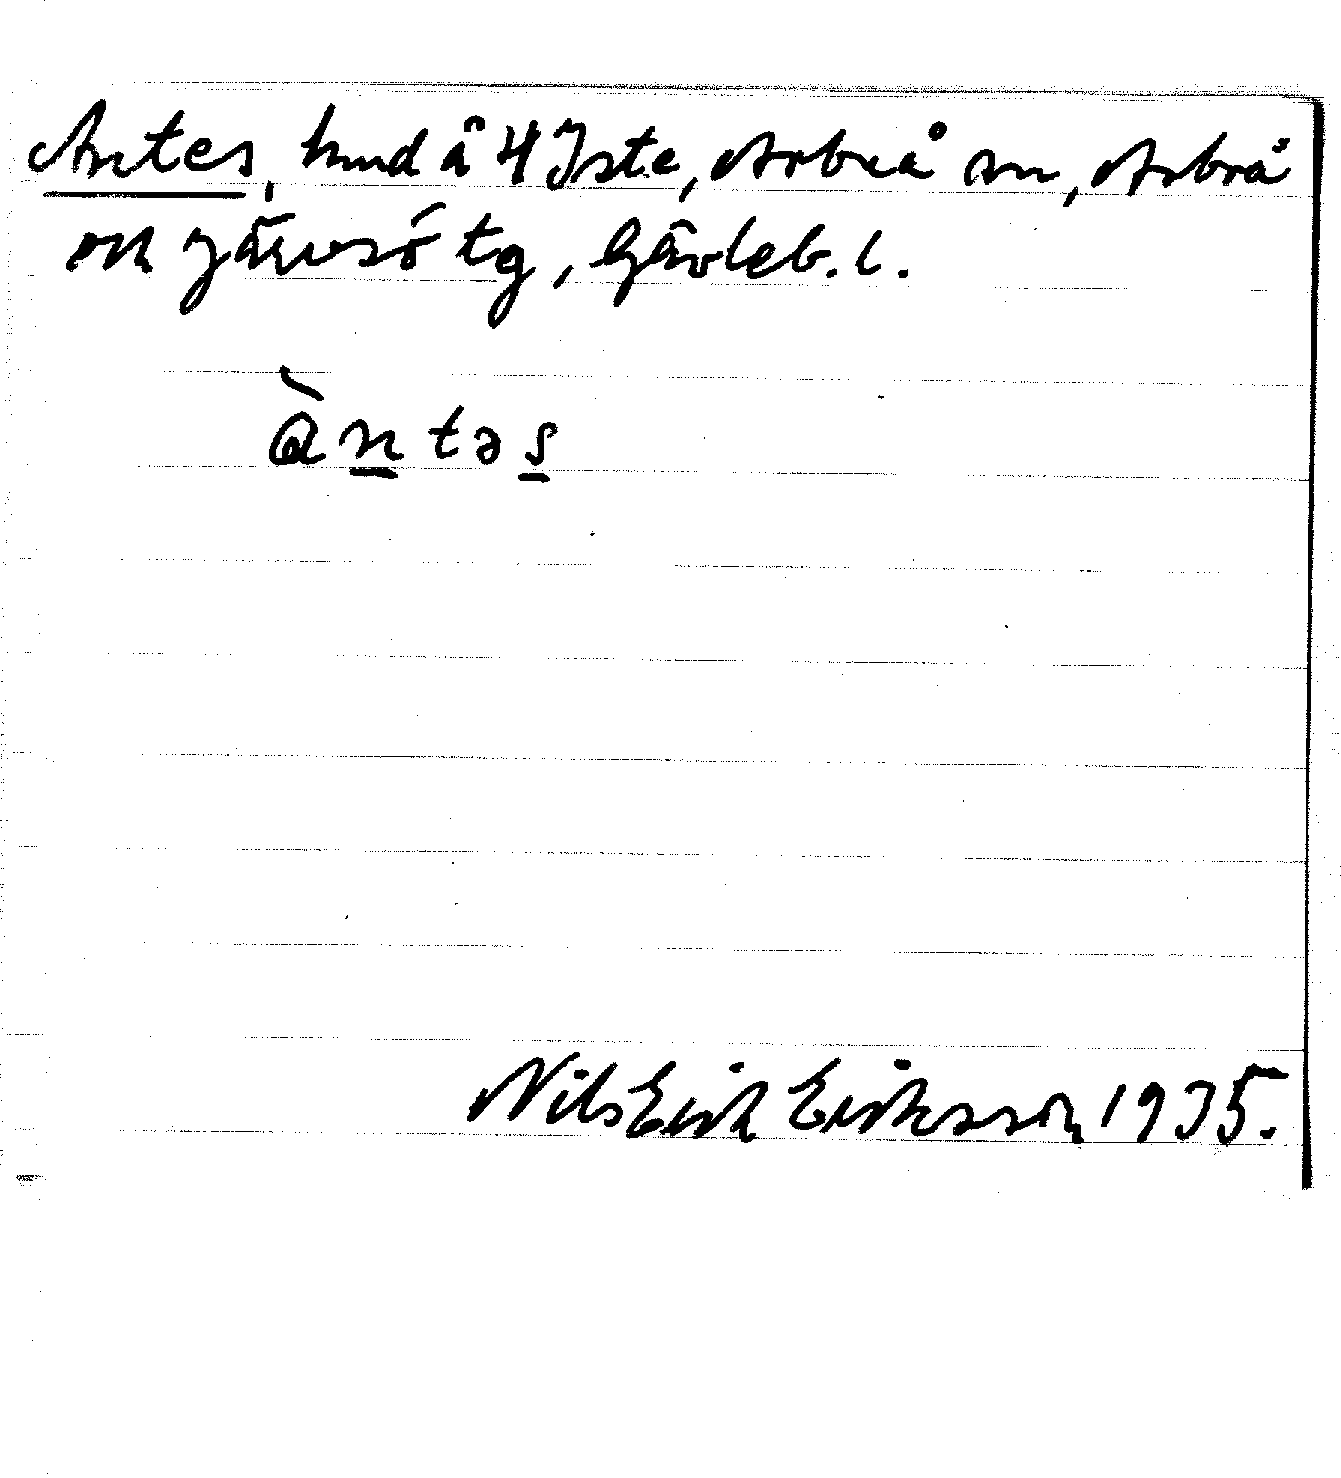 Antes, hmd å 4 Iste, Arbrå sn, Arbrå
o Järvsö tg, Gävleb. l.
àntəs
Nils Erik Eriksson 1935.